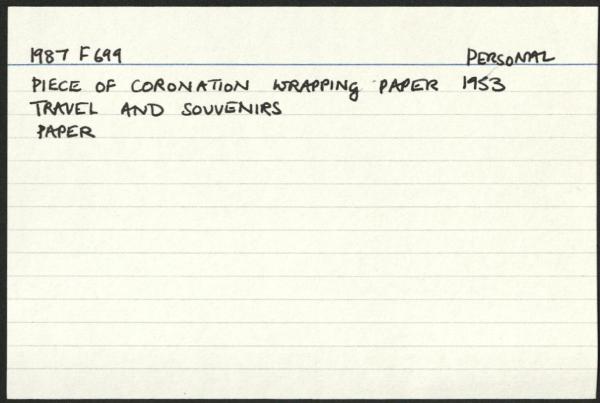 1987 F699 PERSONAL
PIECE OF CORONATION WRAPPING PAPER 1953
TRAVEL AND SOUVENIRS
PAPER